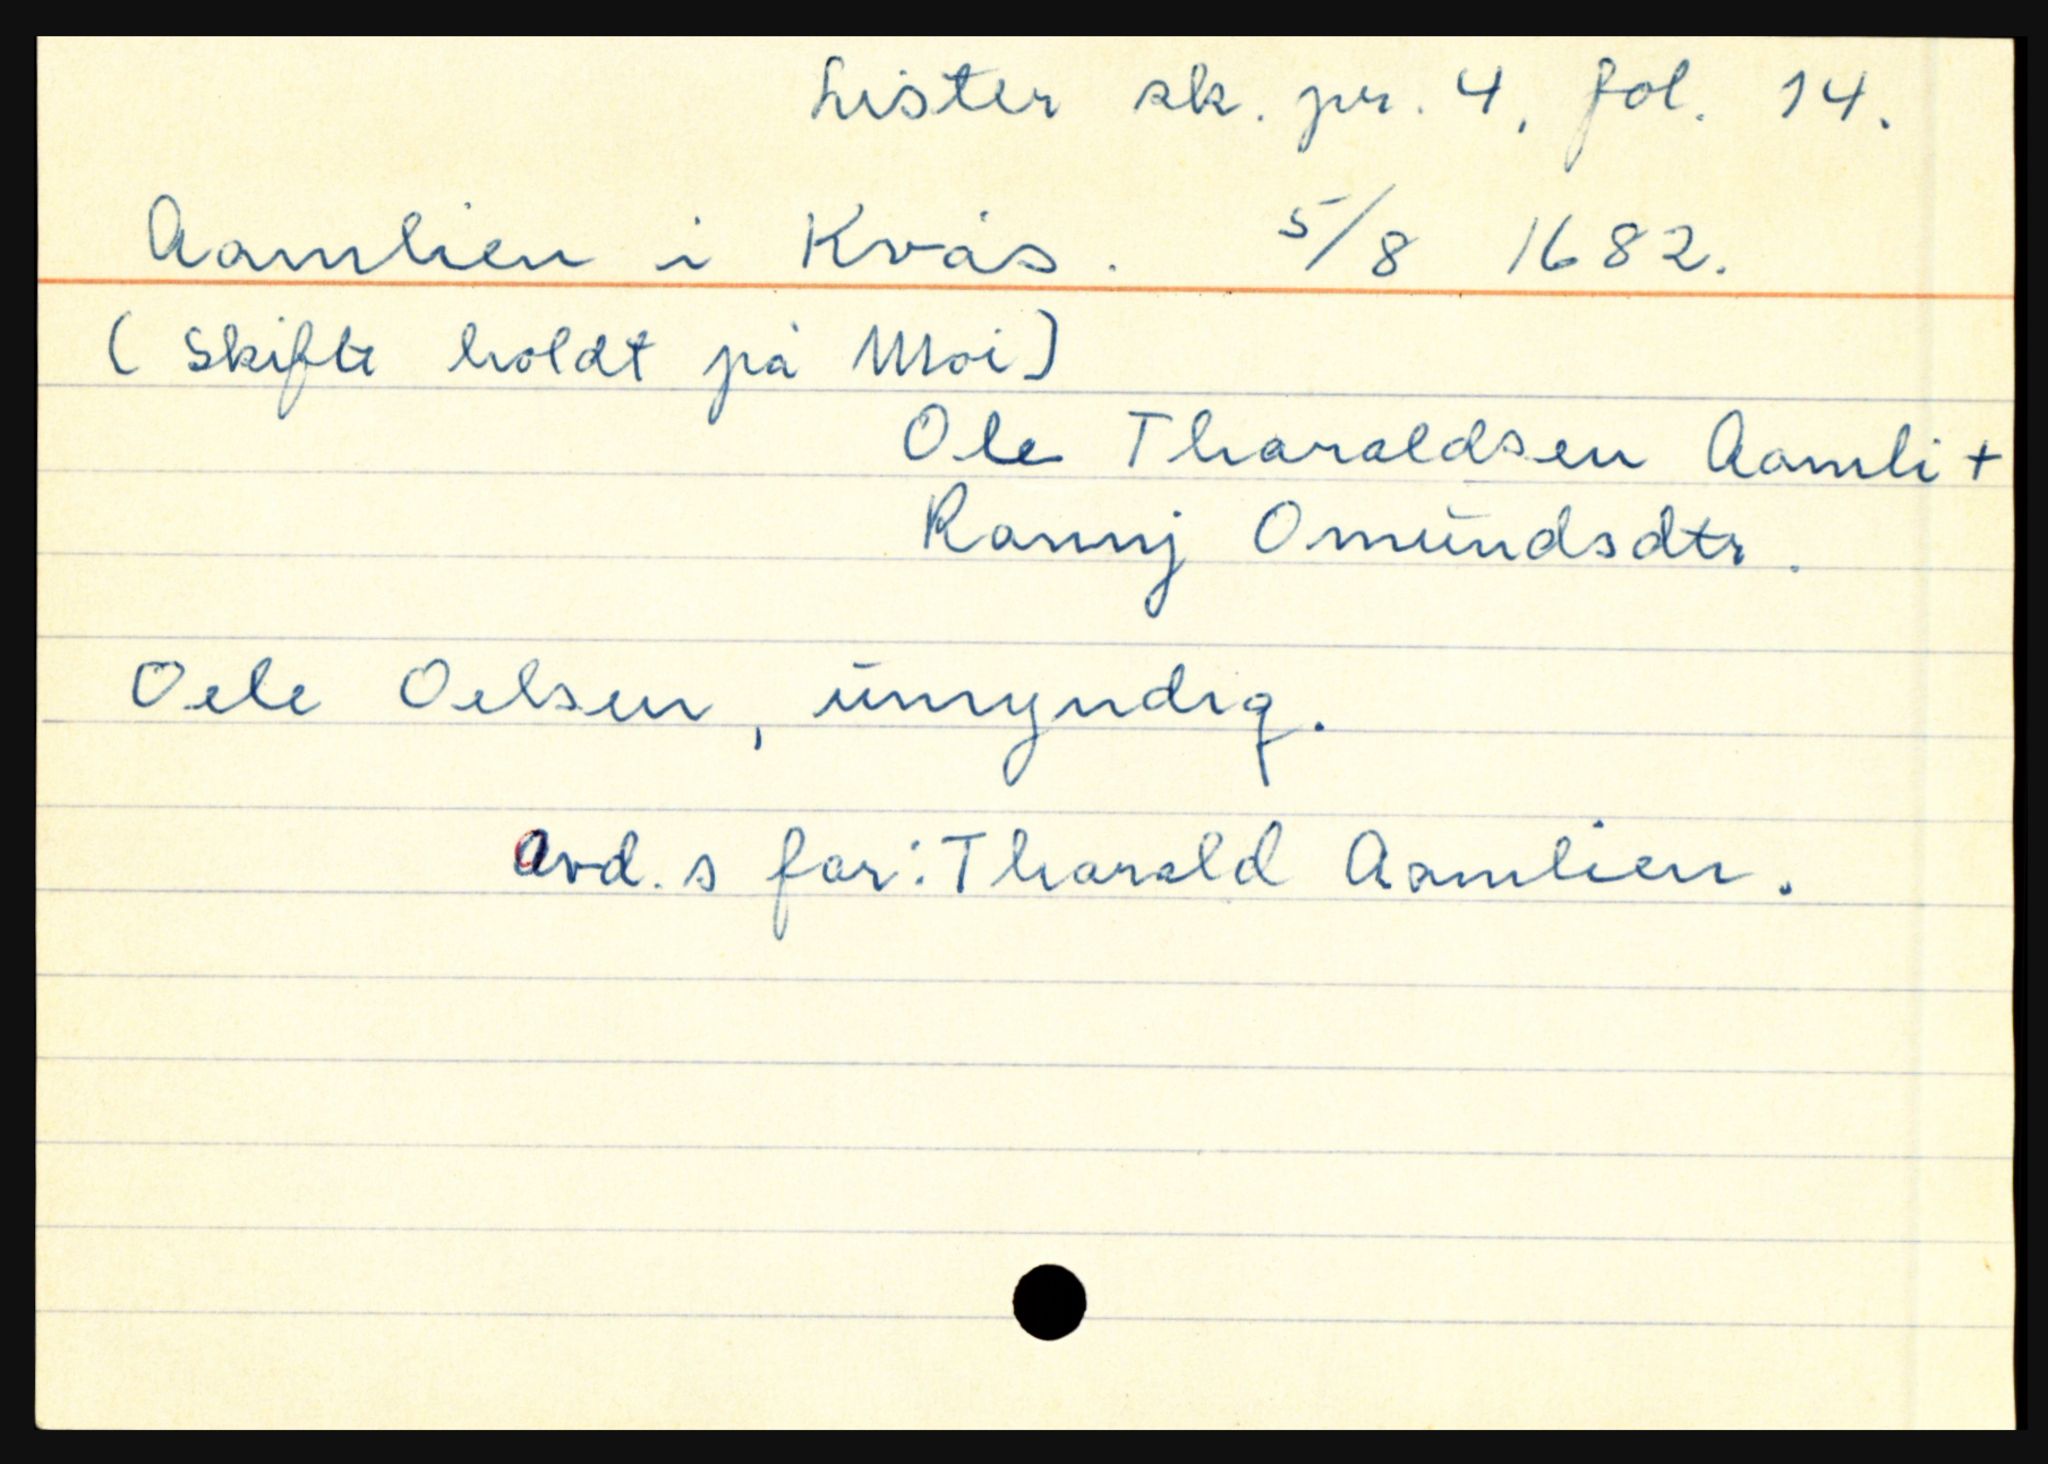 Lister sk. pr. 4, fol. 14.
Aamlien i Kvås. 5/8 1682.
(Skifte holdt på Moi)
Ole Tharaldsen Aamli +
Rannj Omundsdtr.
Oele Oelsen, umyndig.
Avd.s far: Tharald Aamlien.